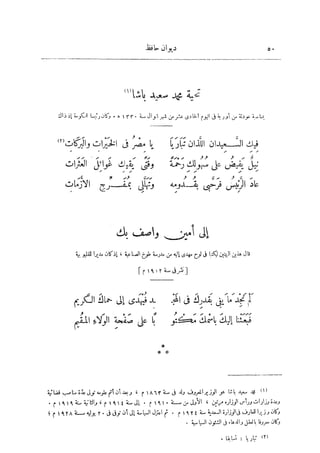 ٥٠ ديوان حافظ
تحية محمد سعيد باشا (١)
بمناسبة عودته من أوربة في اليوم الحادي عشر من شهر شوال سنة ١٣٣٠ هـ وكان رئيسا للحكومة إذ ذاك
فيك السعيدان اللذان تباريا يا مصر في الخيرات والبركات (٢)
نيل يفيض على سهولك رحمة وفتى يقيك غوائل العثرات
عاد الرئيس فرحبى بقدومه وتهللى بمفرج الأزمات
إلى أمين واصف بك
قال هذين البيتين ليكتبا في لوح مهدى إليه من مدرسة طوخ الصناعية، إذ كان مديرا للقليوبية
[نشر في سنة ١٩١٢ م]
لم نجد ما يفي بقدرك في المجد فيهدى إلى حماك الكريم
فبعثنا إليك باسمك مكتوبا على صفحة الولاء المقيم
(١) محمد سعيد باشا هو الوزير المعروف ولد في سنة ١٨٦٣ م، وبعد أن أتم علومه تولى عدة مناصب قضائية
وعدة وزارات ورأس الوزارة مرتين، الأولى من سنة ١٩١٠ م. إلى سنة ١٩١٤ م، والثانية سنة ١٩١٩ م.
وكان وزيرا للمعارف في الوزارة السعدية سنة ١٩٢٤ م. ثم اعتزل السياسة إلى أن توفى في ٢٠ يوليه سنة ١٩٢٨ م،
وكان معروفا بالحذق والدهاء في الشئون السياسية.
(٢) تباريا: تسابقا.